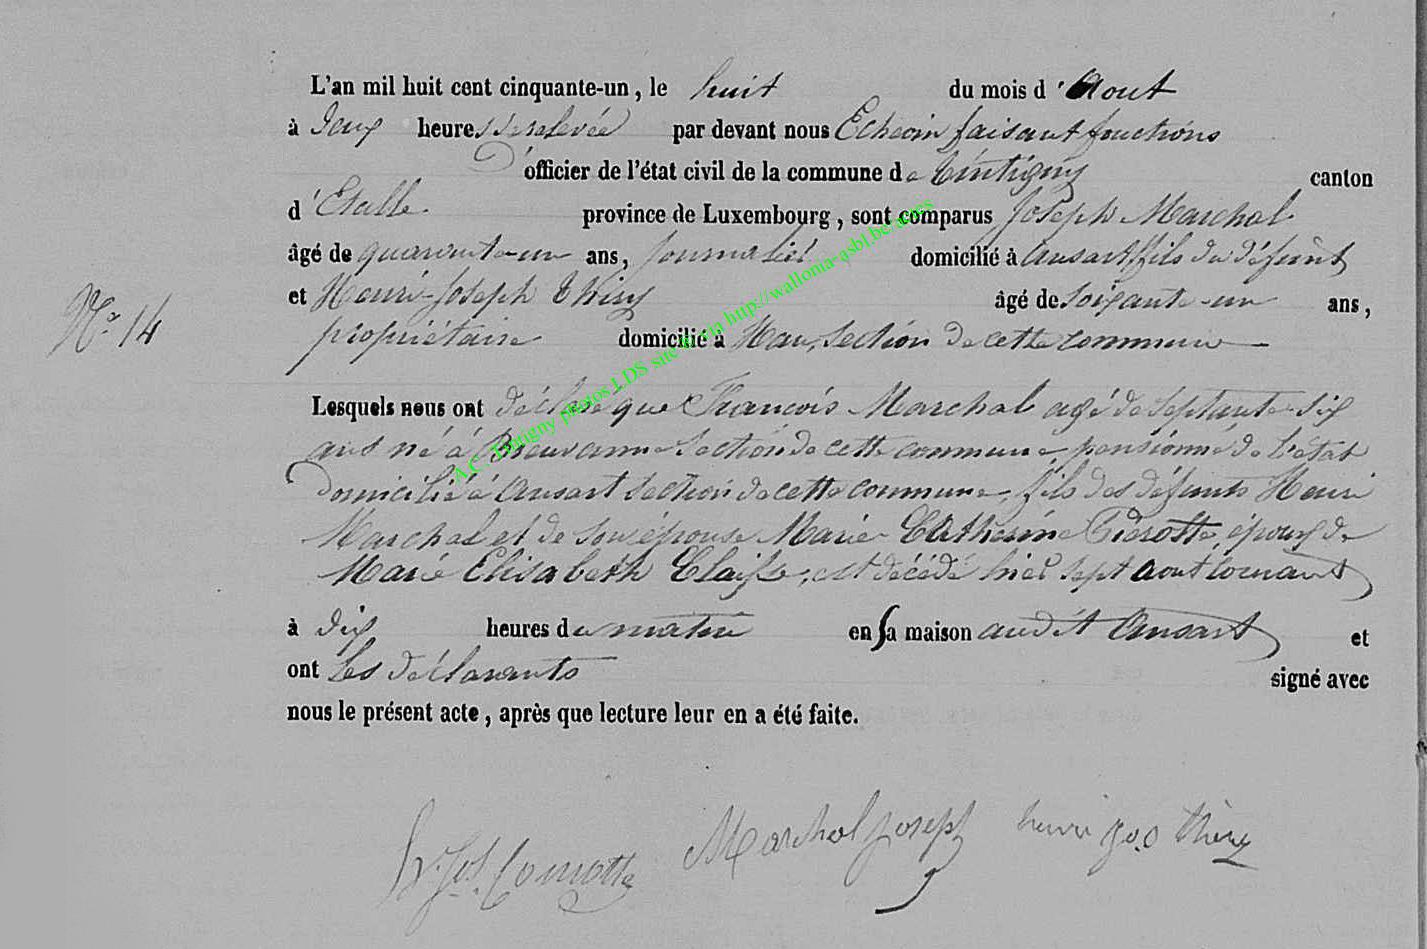 L'an mil huit cent cinquante-un, le huit du mois d'Aout
à Deux heures de relevée par devant nous Echevin faisant fonctions
D'officier de l'état civil de la commune de Tintigny canton
d'Etalle province de Luxembourg, sont comparus Joseph Marchal
âgé de quarante-un ans, journalier domicilié à Ansart fils du défunt
et Henri-Joseph Thiry âgé de soixante-un ans,
No 14
propriétaire domicilié à Han, section de cette commune
Lesquels nous ont déclaré que François Marchal agé de septante-six
ans né à Breuvanne section de cette commune pensionné de l'état
domicilié à Ansart section de cette commune, fils des défunts Henri
Marchal et de son épouse Marie Catherine Pierotte, époux de
Marie Elisabeth Claisse, est décédé hier sept aout courant
à dix heures du matin en sa maison audit Ansart et
ont les déclarants signé avec
nous le présent acte, après que lecture leur en a été faite.
Marchal Joseph henri jos thiry
A.C. Tintigny photos LDS site via http://wallonia-asbl.be/actes